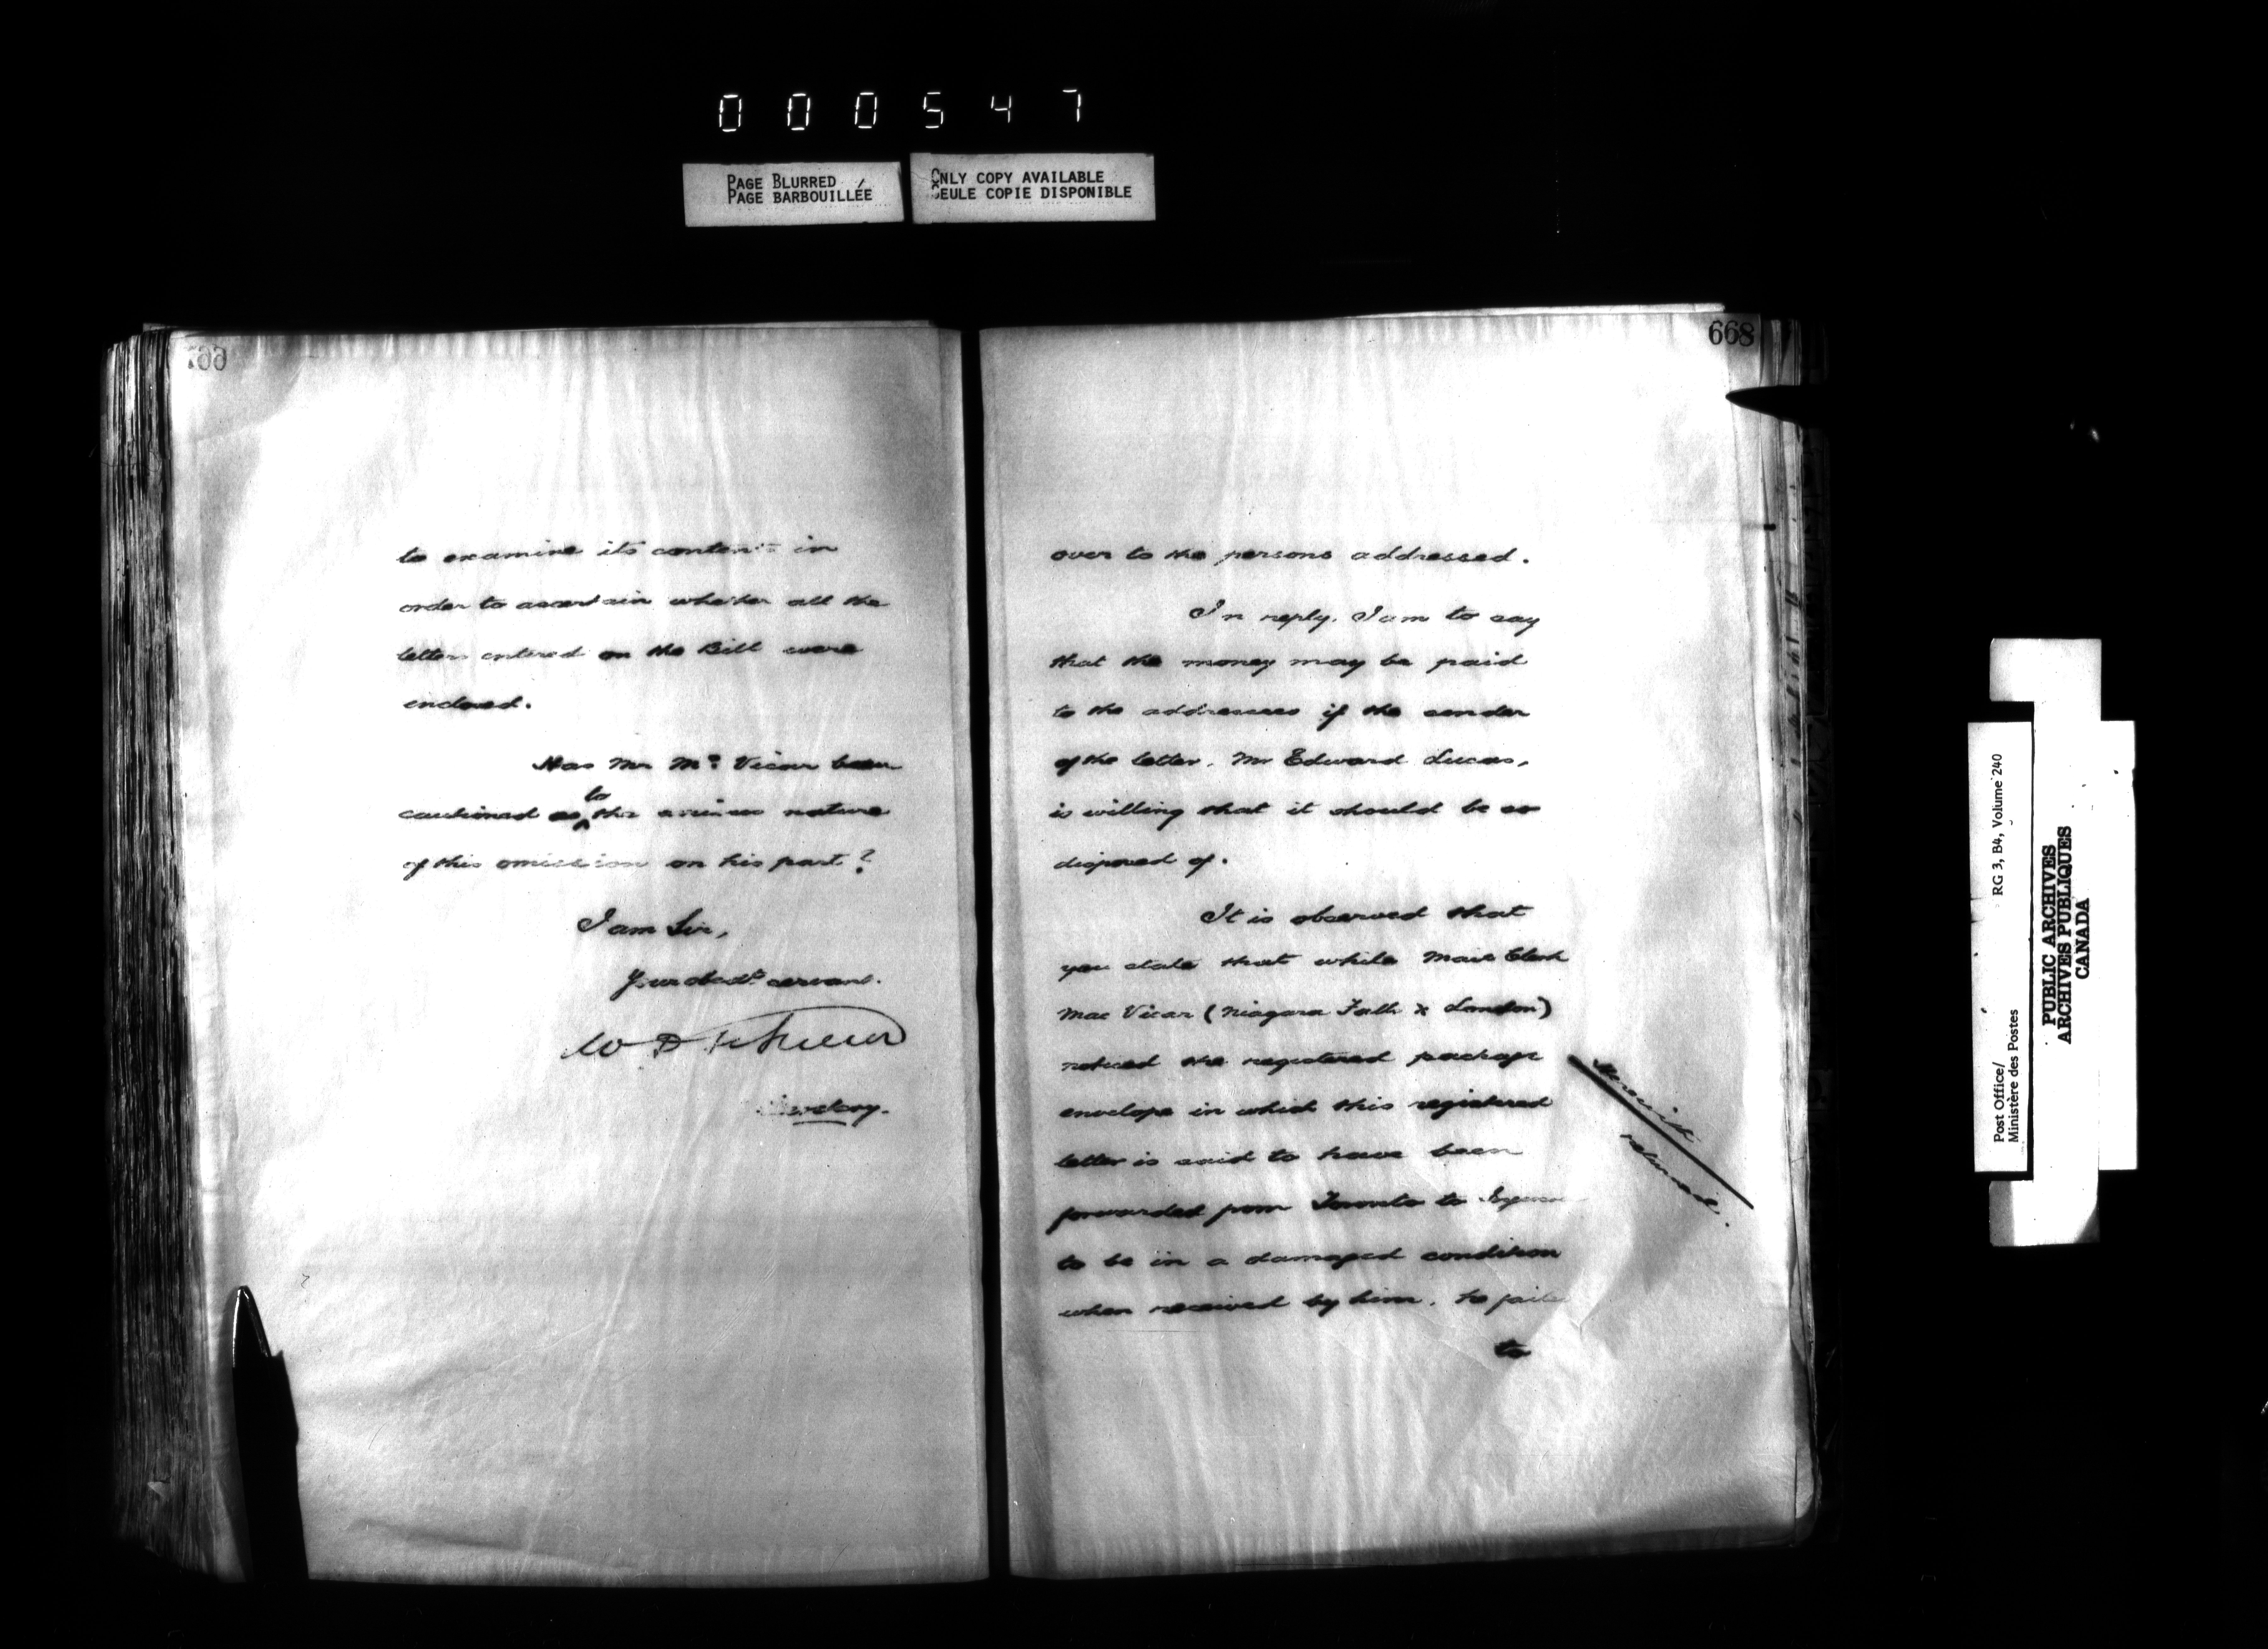 000547
PAGE BLURRED
PAGE BARBOUILLÉE
ONLY COPY AVAILABLE
SEULE COPIE DISPONIBLE
to examine its contents in
order to ascertain whether all the
letters entered on the Bill were
enclosed.
Has Mr Mc Vicar been
cautioned as to the serious nature
of this omission on his part?
I am Sir,
Your obedt. servant.
W D
Secretary.
668
over to the persons addressed.
In reply, I am to say
that the money may be paid
to the addressees if the sender
of the letter, Mr Edward Lucas,
is willing that it should be so
disposed of.
It is observed that
you state that while Mail Clerk
Mac Vicar (Niagara Falls & London)
noticed the registered package
envelope in which this registered
letter is said to have been
forwarded from Toronto to
to be in a damaged condition
when received by him, he failed
to
returned.
Post Office/
Ministère des Postes
RG 3, B4, Volume 240
PUBLIC ARCHIVES
ARCHIVES PUBLIQUES
CANADA